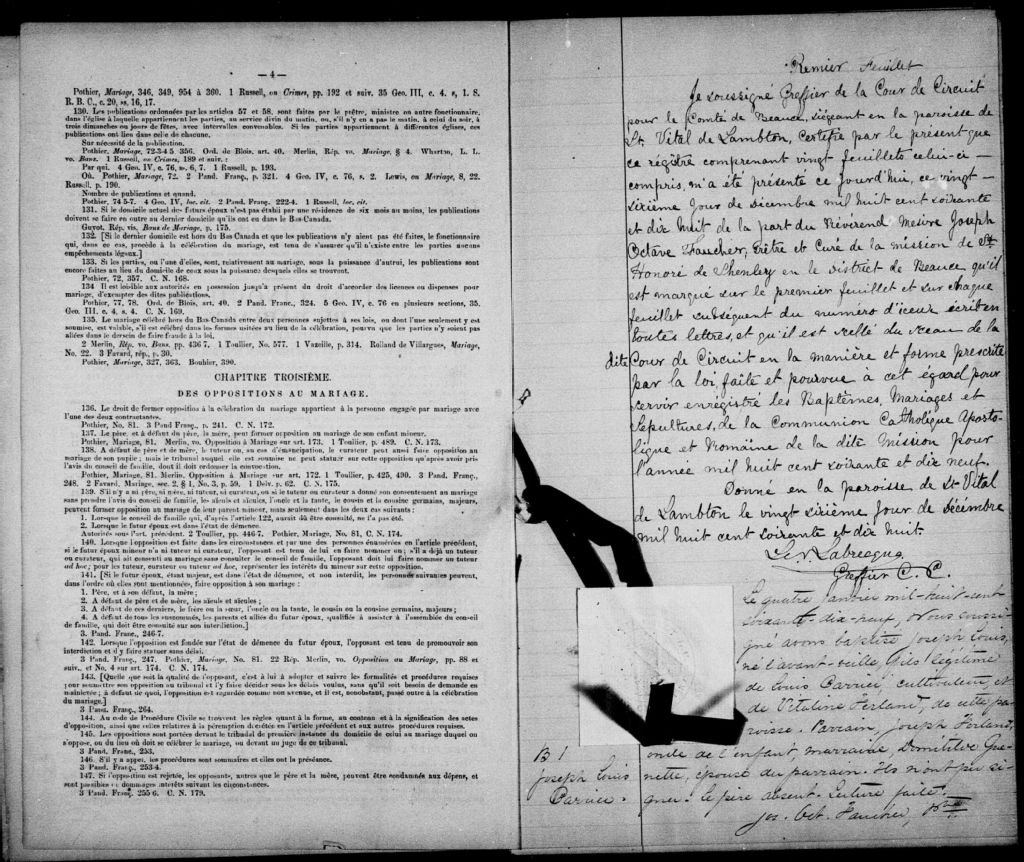 — 4 —
Pothier, Mariage, 346, 349, 954 à 360. 1 Russell, on Crimes, pp. 192 et suiv. 35 Geo. III, c. 4. s, 1. S.
R. B. C., c. 20, ss. 16, 17.
130. Les publications ordonnées par les articles 57 et 58, sont faites par le prêtre, ministre ou autre fonctionnaire,
dans l'église à laquelle appartiennent les parties, au service divin du matin, ou, s'il n'y en a pas le matin, à celui du soir, à
trois dimanches ou jours de fêtes, avec intervalles convenables. Si les parties appartiennent à différentes églises, ces
publications ont lieu dans celle de chacune.
Sur nécessité de la publication.
Pothier, Mariage, 72-3-4-5 356. Ord. de Blois, art. 40. Merlin, Rép. vo. Mariage, § 4. Wharton, L. L.
vo. Bans. 1 Russell, on Crimes, 189 et suiv. :
Par qui. 4 Geo. IV, c. 76, ss. 6, 7. 1 Russell, p. 193.
Où. Pothier, Mariage, 72. 2 Pand. Franç., p. 321. 4 Geo. IV, c. 76, s. 2. Lewis, on Mariage, 8, 22.
Russell, p. 190.
Nombre de publications et quand.
Pothier, 74 5-7. 4 Geo. IV, loc. cit. 2 Pand. Franç., 222-4. 1 Russell, loc. cit.
131. Si le domicile actuel des futurs époux n'est pas établi par une résidence de six mois au moins, les publications
doivent se faire en outre au dernier domicile qu'ils ont eu dans le Bas-Canada.
Guyot. Rép. vis. Bans de Mariage, p. 175.
132. [Si le dernier domicile est hors du Bas-Canada et que les publications n'y aient pas été faites, le fonctionnaire
qui, dans ce cas, procède à la célébration du mariage, est tenu de s'assurer qu'il n'existe entre les parties aucuns
empêchements légaux.]
133. Si les parties, ou l'une d'elles, sont, relativement au mariage, sous la puissance d'autrui, les publications sont
encore faites au lieu du domicile de ceux sous la puissance desquels elles se trouvent.
Pothier, 72, 357. C. N. 168.
134 Il est loisible aux autorités en possession jusqu'à présent du droit d'accorder des licences ou dispenses pour
mariage, d'exempter des dites publications.
Pothier, 77, 78. Ord. de Blois, art. 40. 2 Pand. Franc., 324. 5 Geo. IV, c. 76 en plusieurs sections, 35.
Geo. III c. 4, s. 4. C. N. 169.
135. Le mariage célébré hors du Bas-Canada entre deux personnes sujettes à ses lois, ou dont l'une seulement y est
soumise, est valable, s'il est célébré dans les formes usitées au lieu de la célébration, pourvu que les parties n'y soient pas
allées dans le dessein de faire fraude à la loi.
2 Merlin, Rép. vo. Bans, pp. 436 7. 1 Toullier, No. 577. 1 Vazeille, p. 314. Rolland de Villargues, Mariage,
No. 22. 3 Favard, rép., p. 30.
Pothier, Mariage, 327, 363. Bouhier, 390.
CHAPITRE TROISIÈME.
DES OPPOSITIONS AU MARIAGE.
136. Le droit de former opposition à la célébration du mariage appartient à la personne engagée par mariage avec
l'une des deux contractantes.
Pothier, No. 81. 3 Pand Franç., p. 241. C. N. 172.
137. Le père, et à défaut du père, la mère, peut former opposition au mariage de son enfant mineur.
Pothier, Mariage, 81. Merlin, vo. Opposition à Mariage sur art. 173. 1 Toullier, p. 489. C. N. 173.
138. A défaut de père et de mère, le tuteur ou, au cas d'émancipation, le curateur peut aussi faire opposition au
mariage de son pupile ; mais le tribunal auquel elle est soumise ne peut statuer sur cette opposition qu'après avoir pris
l'avis du conseil de famille, dont il doit ordonner la convocation.
Pothier, Mariage, 81. Merlin. Opposition à Mariage sur art. 172. 1 Toullier, p. 425, 490. 3 Pand. Franç.,
248. 2 Favard. Mariage, sec. 2, § 1, No. 3, p. 59. 1 Delv. p. 62. C. N. 175.
139. S'il n'y a ni père, ni mère, ni tuteur, ni curateur, ou si le tuteur ou curateur a donné son consentement au mariage
sans prendre l'avis du conseil de famille, les aïeuls et aïeules, l'oncle et la tante, le cousin et la cousine germains, majeurs,
peuvent former opposition au mariage de leur parent mineur, mais seulement dans les deux cas suivants :
1. Lorsque le conseil de famille qui, d'après l'article 122, aurait dû être consulté, ne l'a pas été.
2. Lorsque le futur époux est dans l'état de démence.
Autorités sous l'art. précédent. 2 Toullier, pp. 446-7. Pothier, Mariage, No. 81, C. N. 174.
140. Lorsque l'opposition est faite dans les circonstances et par une des personnes énumérées en l'article précédent,
si le futur époux mineur n'a ni tuteur ni curateur, l'opposant est tenu de lui en faire nommer un ; s'il a déjà un tuteur
ou curateur, qui ait consenti au mariage sans consulter le conseil de famille, l'opposant doit lui faire nommer un tuteur
ad hoc; pour les tuteur, curateur ou tuteur ad hoc, représenter les intérêts du mineur sur cette opposition.
141. [Si le futur époux, étant majeur, est dans l'état de démence, et non interdit, les personnes suivantes peuvent,
dans l'ordre où elles sont mentionnées, faire opposition à son mariage :
1. Père, et à son défaut, la mère ;
2. A défaut de père et de mère, les aïeuls et aïeules ;
3. A défaut de ces derniers, le frère ou la sœur, l'oncle ou la tante, le cousin ou la cousine germains, majeurs ;
4. A défaut de tous les susnommés, les parents et alliés du futur époux, qualifiés à assister à l'assemblée du conseil
de famille, qui doit être consulté sur son interdiction.]
3. Pand. Franç., 246-7.
142. Lorsque l'opposition est fondée sur l'état de démence du futur époux, l'opposant est tenu de promouvoir son
interdiction et d'y faire statuer sans délai.
3 Pand. Franç., 247. Pothier, Mariage, No. 81. 22 Rép. Merlin, vo. Opposition au Mariage, pp. 88 et
suiv., et No. 4 sur art. 174. C. N. 174.
143. [Quelle que soit la qualité de l'opposant, c'est à lui à adopter et suivre les formalités et procédures requises
pour soumettre son opposition au tribunal et l'y faire décider sous les délais voulus, sans qu'il soit besoin de demande en
mainlevée ; à défaut de quoi, l'opposition est regardée comme non avenue, et il est, nonobstant, passé outre à la célébration
du mariage.]
3 Pand. Franç., 264.
144. Au code de Procédure Civile se trouvent les règles quant à la forme, au contenu et à la signification des actes
d'opposition, ainsi que celles relatives à la péremption décrétée en l'article précédent et aux autres procédures requises.
145. Les oppositions sont portées devant le tribunal de première instance du domicile de celui au mariage duquel on
s'oppose, ou du lieu où doit se célébrer le mariage, ou devant un juge de ce tribunal.
3 Pand. Franc., 253.
146. S'il y a appel, les procédures sont sommaires et elles ont la préséance.
3 Pand. Franç., 253-4.
147. Si l'opposition est rejetée, les opposants, autres que le père et la mère, peuvent être condamnés aux dépens, et
sont passibles de dommages intérêts suivant les circonstances.
3 Pand. Franç. 255-6. C. N. 179.
Premier Feuillet
Je soussigné Greffier de la Cour de Circuit
pour le Comté de Beauce, siégeant en la paroisse de
St. Vital de Lambton, certifie par le présent que
ce régistre comprenant vingt feuillets celui-ci —
compris, m'a été présenté ce jourd'hui, ce vingt —
sixième jour de Décembre mil huit cent soixante
et dix huit de la part du Révérend Messire Joseph
Octave Faucher, Prêtre et Curé de la mission de St
Honoré de Shenley en le district de Beauce qu'il
est marqué sur le premier feuillet et sur chaque
feuillet subséquent du numéro d'iceux écrit en
toutes lettres, et qu'il est scellé du sceau de la
dite Cour de Circuit en la manière et forme prescrite
par la loi, faite et pourvue à cet égard pour
servir enregistré les Baptêmes, Mariages et
Sépultures, de la Communion Catholique Aposto-
lique et Romaine de la dite Mission pour
l'année mil huit cent soixante et dix neuf.
Donné en la paroisse de St Vital
de Lambton le vingt sixième jour de Décembre
mil huit cent soixante et dix huit.
Labrecque
Greffier C. C.
Le quatre Janvier mil-huit-cent
soixante-dix-neuf, Nous soussi-
gné avons baptisé Joseph Louis,
né l'avant-veille, fils légitime
de Louis Carrier, cultivateur, et
de Vitaline Ferland, de cette pa-
roisse. Parrain, Joseph Ferland,
oncle de l'enfant, marraine, Domitilde Gue-
nette, épouse du parrain. Ils n'ont pu si-
gner. le père absent. Lecture faite.
Jos. Oct. Faucher, Ptre
B 1
Joseph Louis
Carrier.